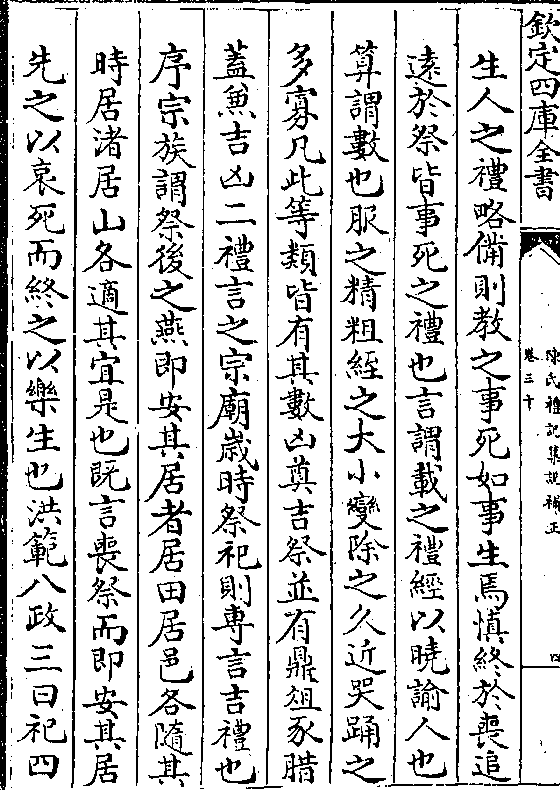 欽定四庫全書
陳氏禮記集說補正
卷三十
四
生人之禮略備則教之事死如事生焉慎終於喪追
遠於祭皆事死之禮也言謂載之禮經以曉諭人也
算謂數也服之精粗絰之大小變除之久近哭踊之
多寡凡此等類皆有其數凶奠吉祭並有鼎俎豕腊
蓋兼吉凶二禮言之宗廟歲時祭祀則專言吉禮也
序宗族謂祭後之燕即安其居者居田居邑各隨其
時居渚居山各適其宜是也既言喪祭而即安其居
先之以哀死而終之以樂生也洪範八政三曰祀四